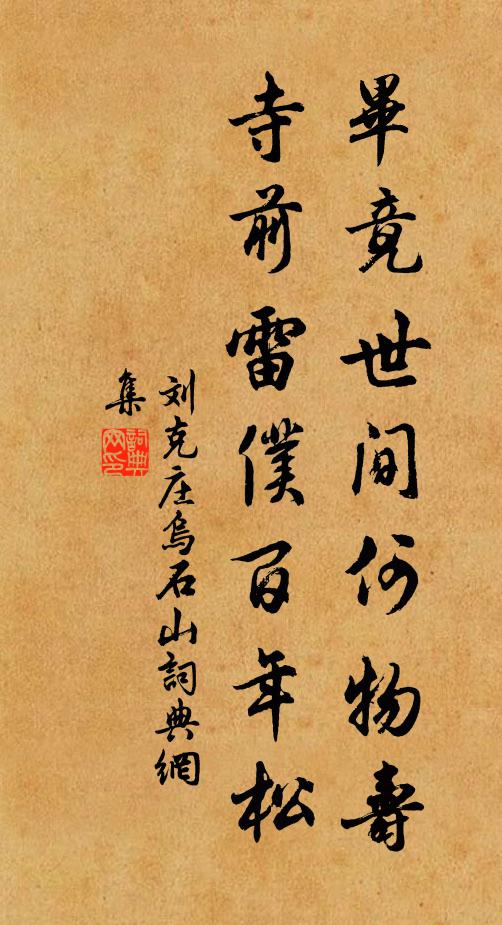 畢竟世間何物壽
寺前雷僕百年松
刘克庄烏石山詞典網
集
詞典网印